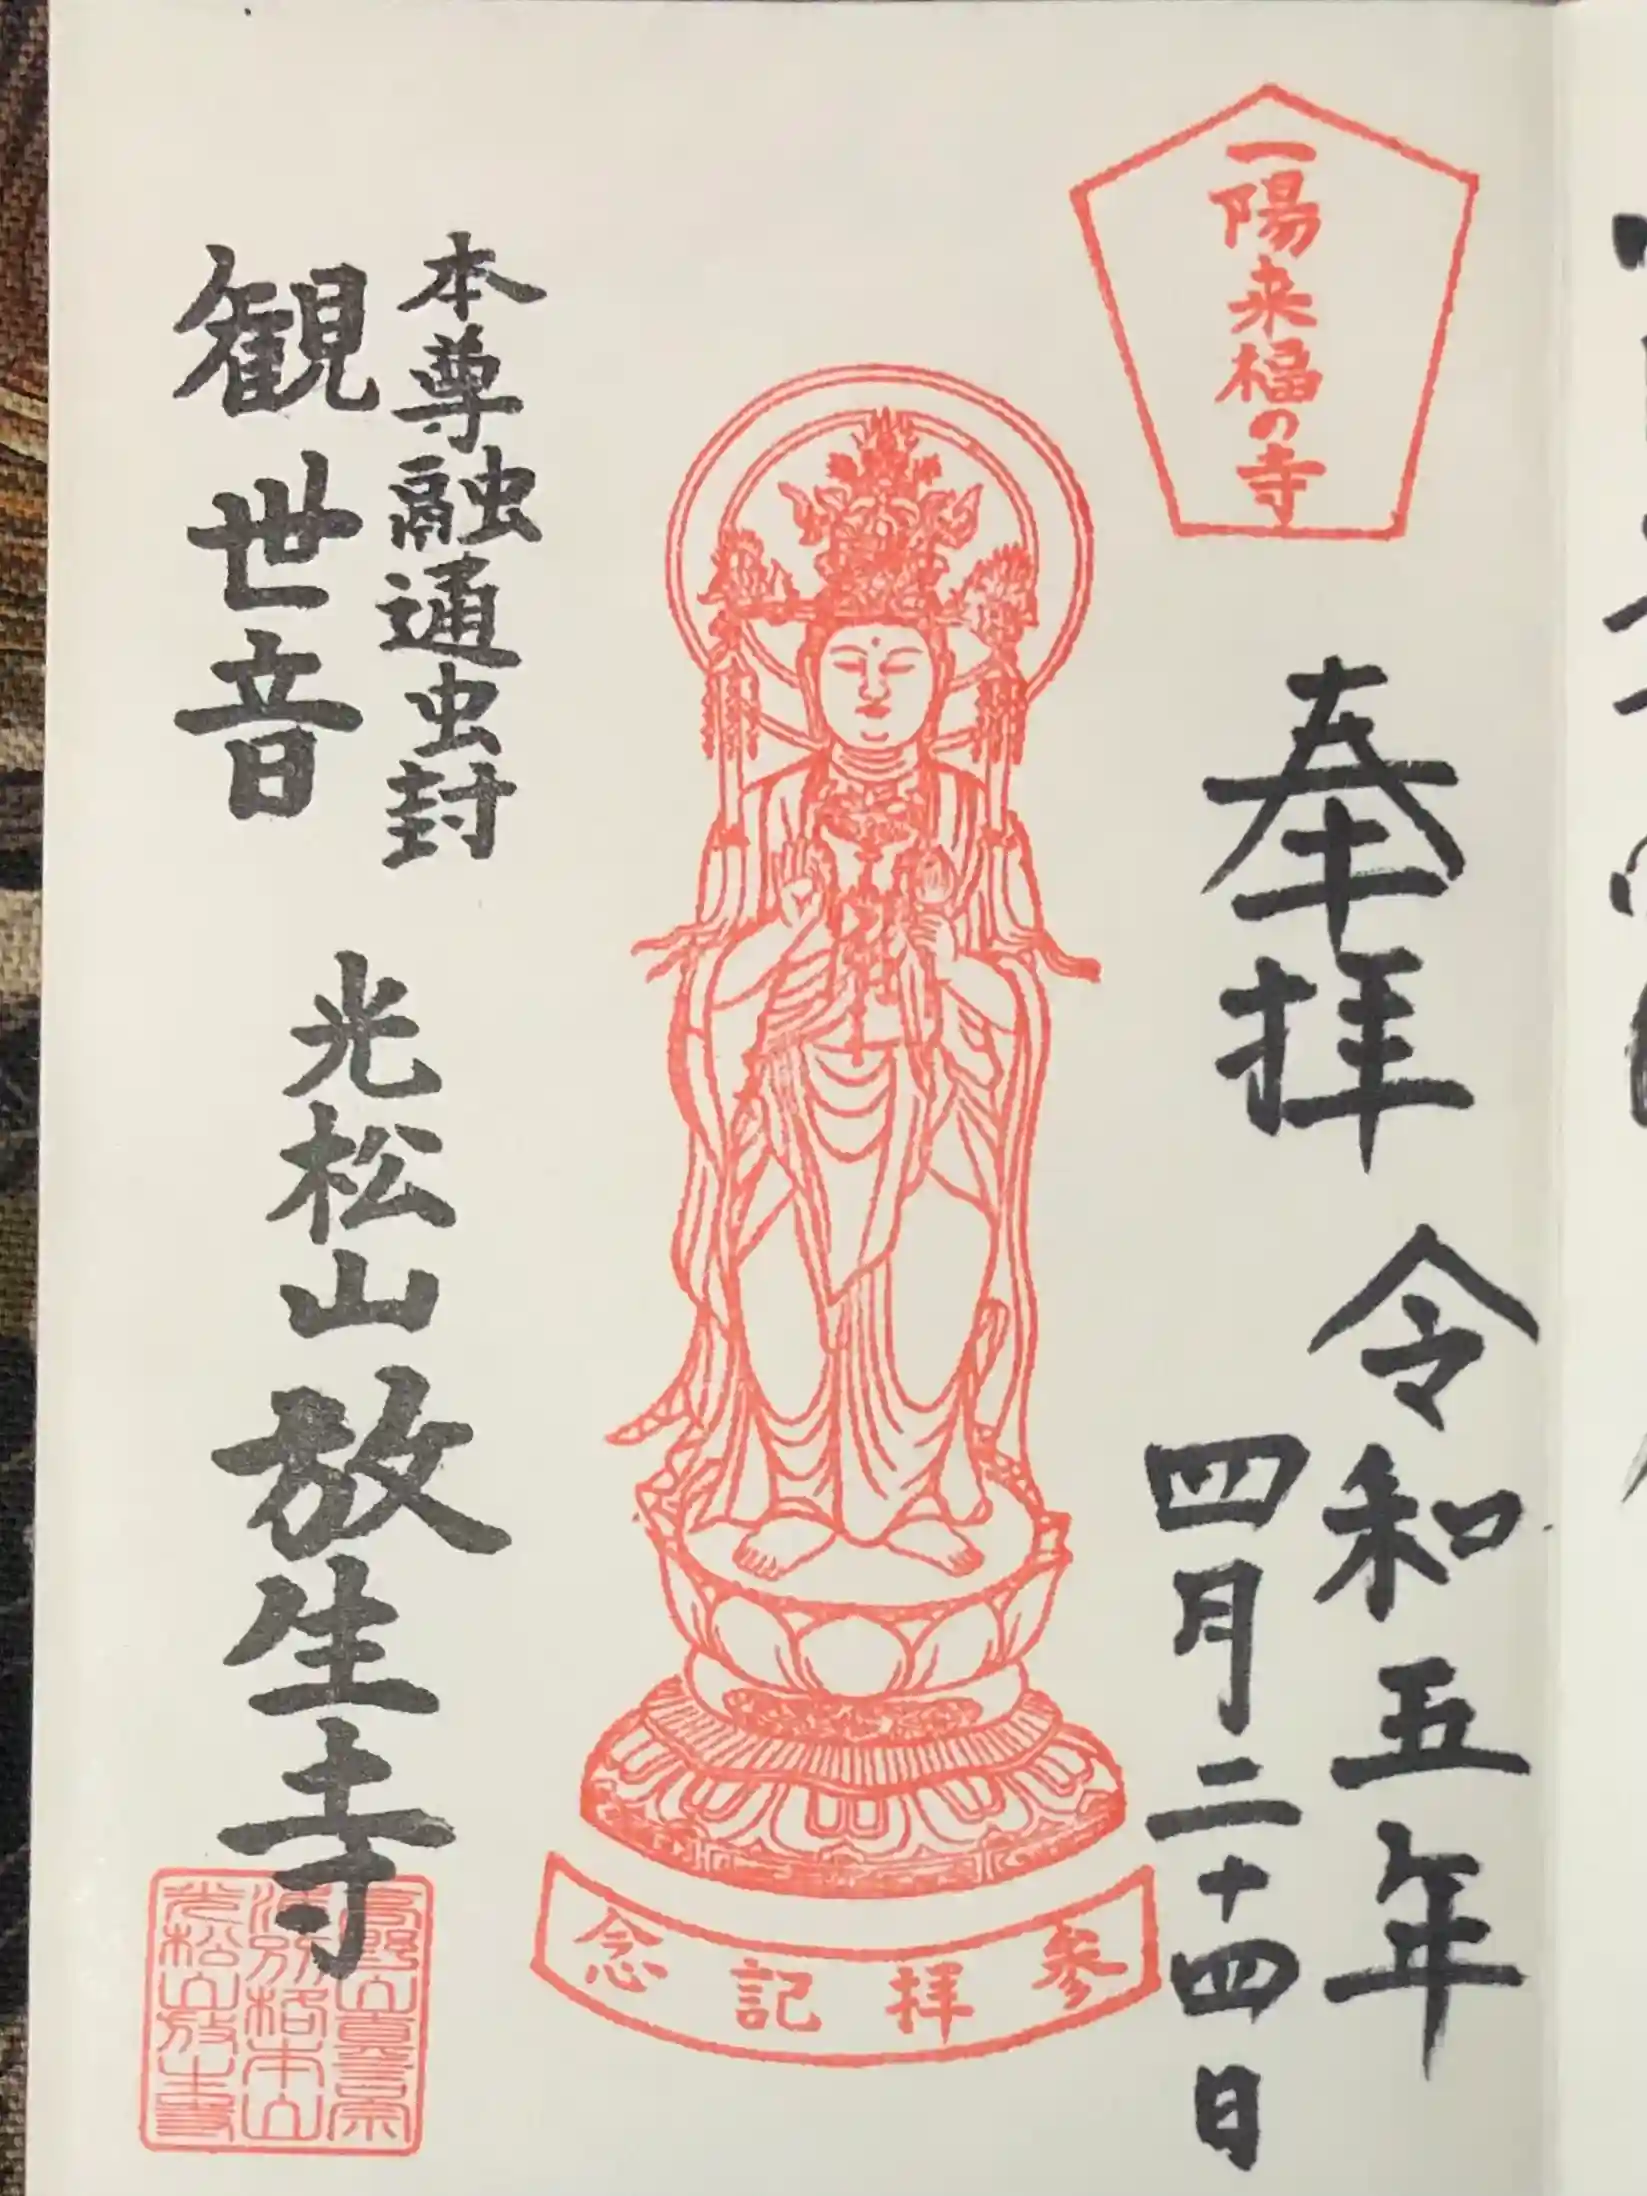 一陽来福の寺
奉拝
令和五年
四月二十四日
参拝記念
本尊融通虫封
観世音
光松山放生寺
高野山真言宗
準別格本山
光松山放生寺